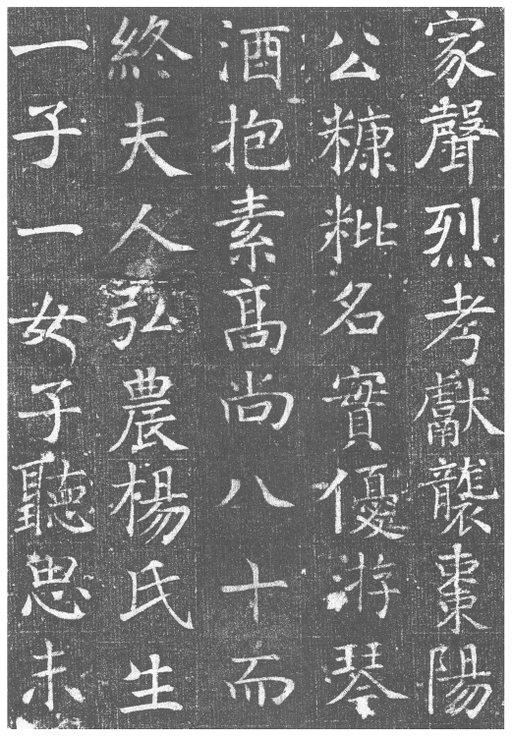 家聲烈考獻襲棗陽
公糠粃名實優游琴
酒抱素高尚八十而
終夫人弘農楊氏生
一子一女子聽思未